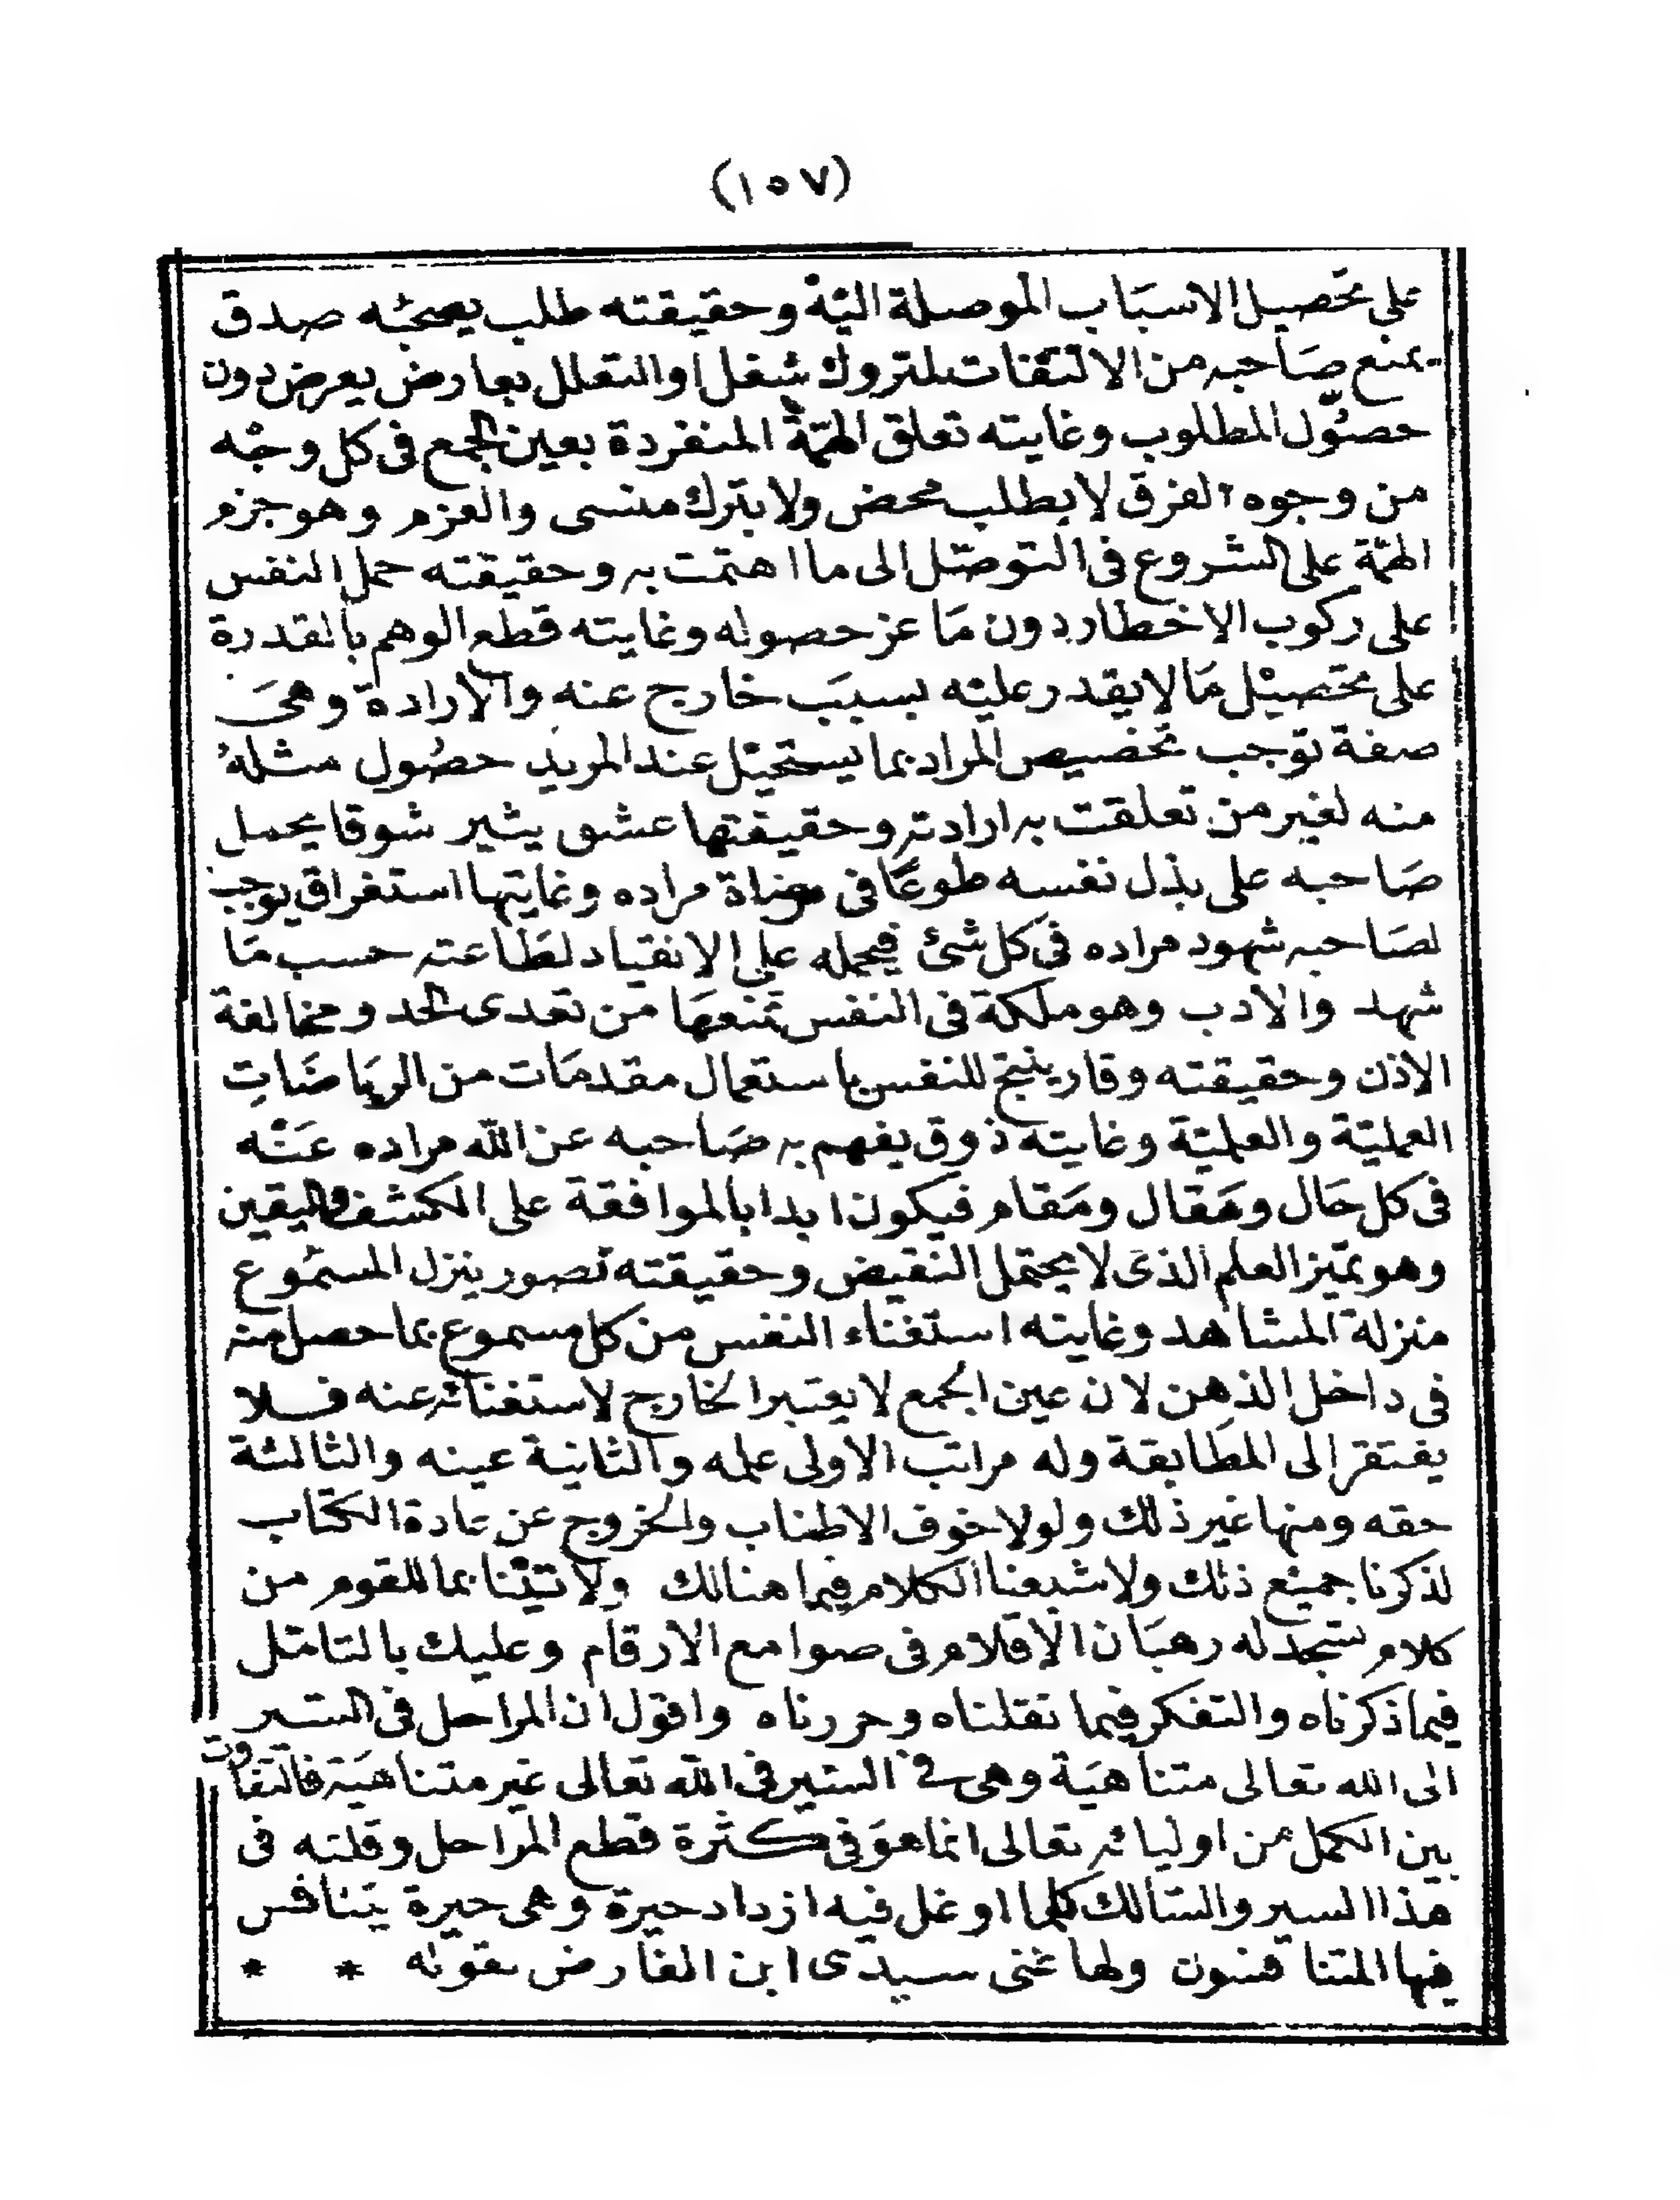 (١٥٧)
على تحصيل الاسبَاب الموصلة اليْه وحقيقته طلب يصحبُه صدق
يمنع صَاحبه من الالتفات لمتروك شغل او التعلل بعارض يعرض دون
حصُول المطلوب وغايته تعلق الهمّة المنفردة بعين الجمع فى كل وجْه
من وجوه الفرق لا بطلب محض ولا بترك منسى والعزم وهو جزم
الهمّة على الشروع فى التوصّل الى ما اهتمت به وحقيقته حمل النفس
على ركوب الاخطار دون مَا عز حصوله وغايته قطع الوهم بالقدرة
على تحصيْل مَا لا يقدر عليْه بسبَب خارج عنه والارادة وهىَ
صفة توجب تخصيص المراد بما يستحيْل عند المريد حصُول مثلهُ
منه لغير من تعلقت به ارادته وحقيقتها عشق يثير شوقا يحمل
صَاحبه على بذل نفسه طوعًا فى مرضاة مراده وغايتها استغراق يوجب
لصَاحبه شهود مراده فى كل شئ فيحمله على الانقياد لطَاعته حسب مَا
شهد والادب وهو ملكة فى النفس تمنعهَا من تعدى الحد ومخالفة
الاذن وحقيقته وقار ينتج للنفس باستعمال مقدمَات من الريَاضَاتِ
العمليّة والعلميّة وغايته ذوق يفهم به صَاحبه عن الله مراده عَنْه
فى كل حَال ومَقال ومَقام فيكون ابدا بالموافقة على الكشف واليقين
وهو تميّز العلم الذى لا يحتمل النقيض وحقيقته تصور ينزل المسمُوع
منزلة المشاهد وغايته استغناء النفس من كل مسموع بما حصل منه
فى داخل الذهن لان عين الجمع لا يعتبر الخارج لاستغنائه عنه فلا
يفتقر الى المطَابقة وله مراتب الاولى علمه والثانية عينه والثالثة
حقه ومنها غير ذلك ولولا خوف الاطناب والخروج عن عادة الكتاب
لذكرنا جميْع ذلك ولاشبعنا الكلام فيما هنالك ولاتيْنا بما للقوم من
كلام ستجد له رهبَان الاقلام فى صوامع الارقام وعليك بالتامّل
فيما ذكرناه والتفكر فيما نقلناه وحررناه واقول ان المراحل فى السّير
الى الله تعالى متناهيَة وهى فى السّير فى الله تعالى غير متناهيَة فالتفاوت
بين الكمل من اوليائه تعالى انما هوَ فى كثرة قطع المراحل وقلته فى
هذا السير والسّالك كلما اوغل فيه ازداد حيرة وهى حيرة يتنافس
فيها المتنافسون ولها غنى سيدى ابن الفارض بقوله * *